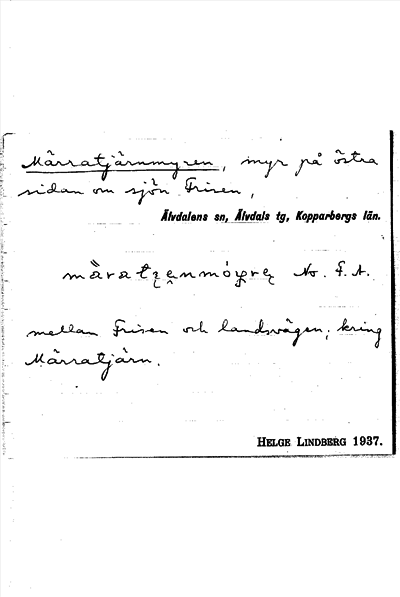 Märratjärnmyren, myr på östra
sidan om sjön Frisen,
Älvdalens sn, Älvdals tg, Kopparbergs län.
No. F. A.
mellan Frisen och landsvägen, kring
Märratjärn.
HELGE LINDBERG 1937.